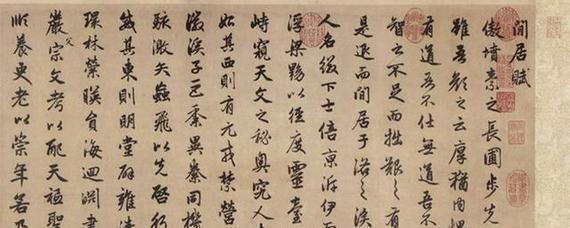 閒居賦
傲墳素之長圃步先
雖吾顏之云厚猶內
有道吾不仕無道吾不
智之不足而拙艱之有
是退而閒居于洛之涘
人名綴下士倍京泝伊
浮梁黝以徑度靈臺
峙窺天文之秘奧究人
始其西則有元戎禁營
徽溪子巨黍異絭同機
駭激矢蝱飛以先啓行
威其東則明堂辟雍清
環林縈映員海迴淵聿
嚴父宗文考以配天祗聖
順養更老以崇年若乃